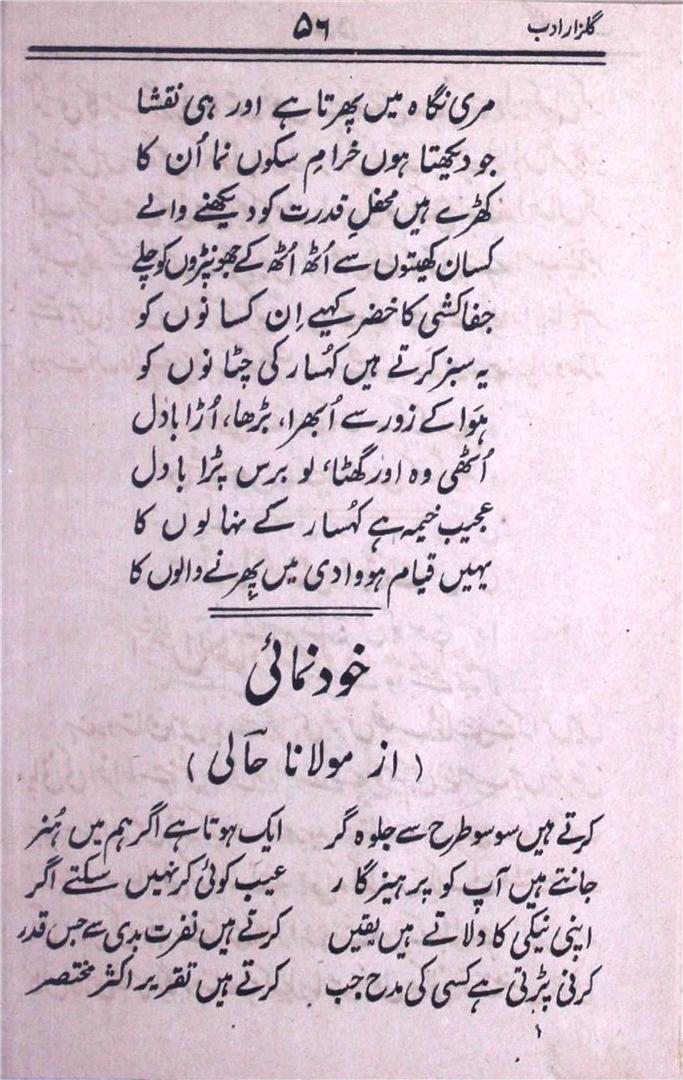 گلزار ادب ۵۶
مری نگاہ میں پھرتا ہے اور ہی نقشا
جو دیکھتا ہوں خرامِ سکوں نما اُن کا
کھڑے ہیں محفلِ قدرت کو دیکھنے والے
کسان کھیتوں سے اُٹھ اُٹھ کے جھونپڑوں کو چلے
جفاکشی کا خضر کہیے اِن کسانوں کو
یہ سبز کرتے ہیں کہُسار کی چٹانوں کو
ہَوا کے زور سے اُبھرا، بڑھا، اُڑا بادل
اُٹھی وہ اور گھٹا، لو برس پڑا بادل
عجیب خیمہ ہے کہُسار کے نہالوں کا
یہیں قیام ہو وادی میں پھِرنے والوں کا
خود نمائی
(از مولانا حالی)
کرتے ہیں سو سو طرح سے جلوہ گر ایک ہوتا ہے اگر ہم میں ہُنر
جانتے ہیں آپ کو پرہیزگار عیب کوئی کر نہیں سکتے اگر
اپنی نیکی کا دلاتے ہیں یقیں کرتے ہیں نفرت بدی سے جس قدر
کرنی پڑتی ہے کسی کی مدح جب کرتے ہیں تقریر اکثر مختصر